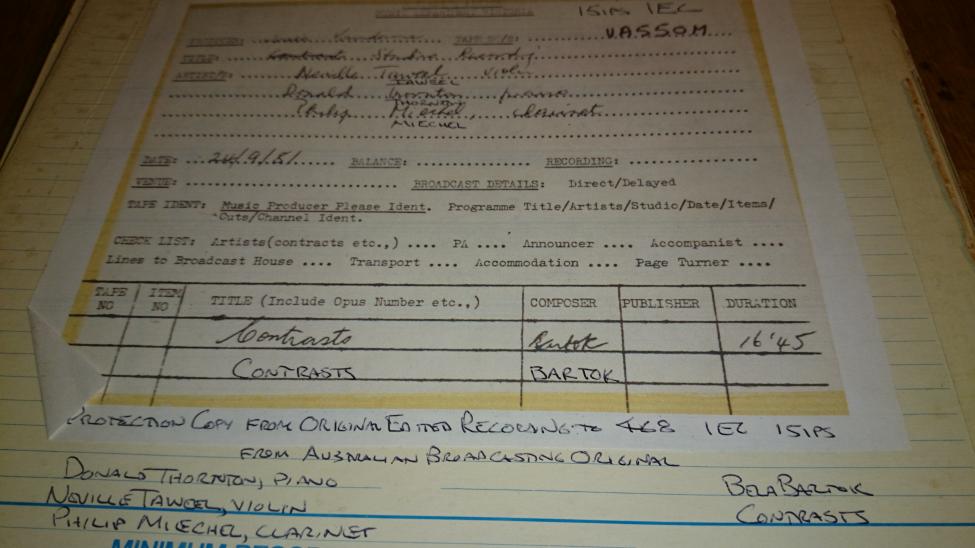 15IPS IEC
PRODUCER: TAPE NO/S: V.A.S.S.O.M.
TITLE: Contrasts Studio Recording
ARTIST/S: Neville Taweel violin
TAWEEL
Donald Thornton piano
THORNTON
Philip Miechel, clarinet
MIECHEL
DATE: 24/9/51 BALANCE: RECORDING:
VENUE: BROADCAST DETAILS: Direct/Delayed
TAPE IDENT: Music Producer Please Ident. Programme Title/Artists/Studio/Date/Items/
Cuts/Channel Ident.
CHECK LIST: Artists(contracts etc.,) .... PA .... Announcer .... Accompanist ....
Lines to Broadcast House .... Transport .... Accommodation .... Page Turner ....
TAPE NO ITEM NO TITLE (Include Opus Number etc.,) COMPOSER PUBLISHER DURATION
Contrasts Bartok 16'45
CONTRASTS BARTOK
PROTECTION COPY FROM ORIGINAL EDITED RECORDING TO 468 IEC 15IPS
FROM AUSTRALIAN BROADCASTING ORIGINAL
DONALD THORNTON, PIANO
NEVILLE TAWEEL, VIOLIN
PHILIP MIECHEL, CLARINET
BELA BARTOK
CONTRASTS